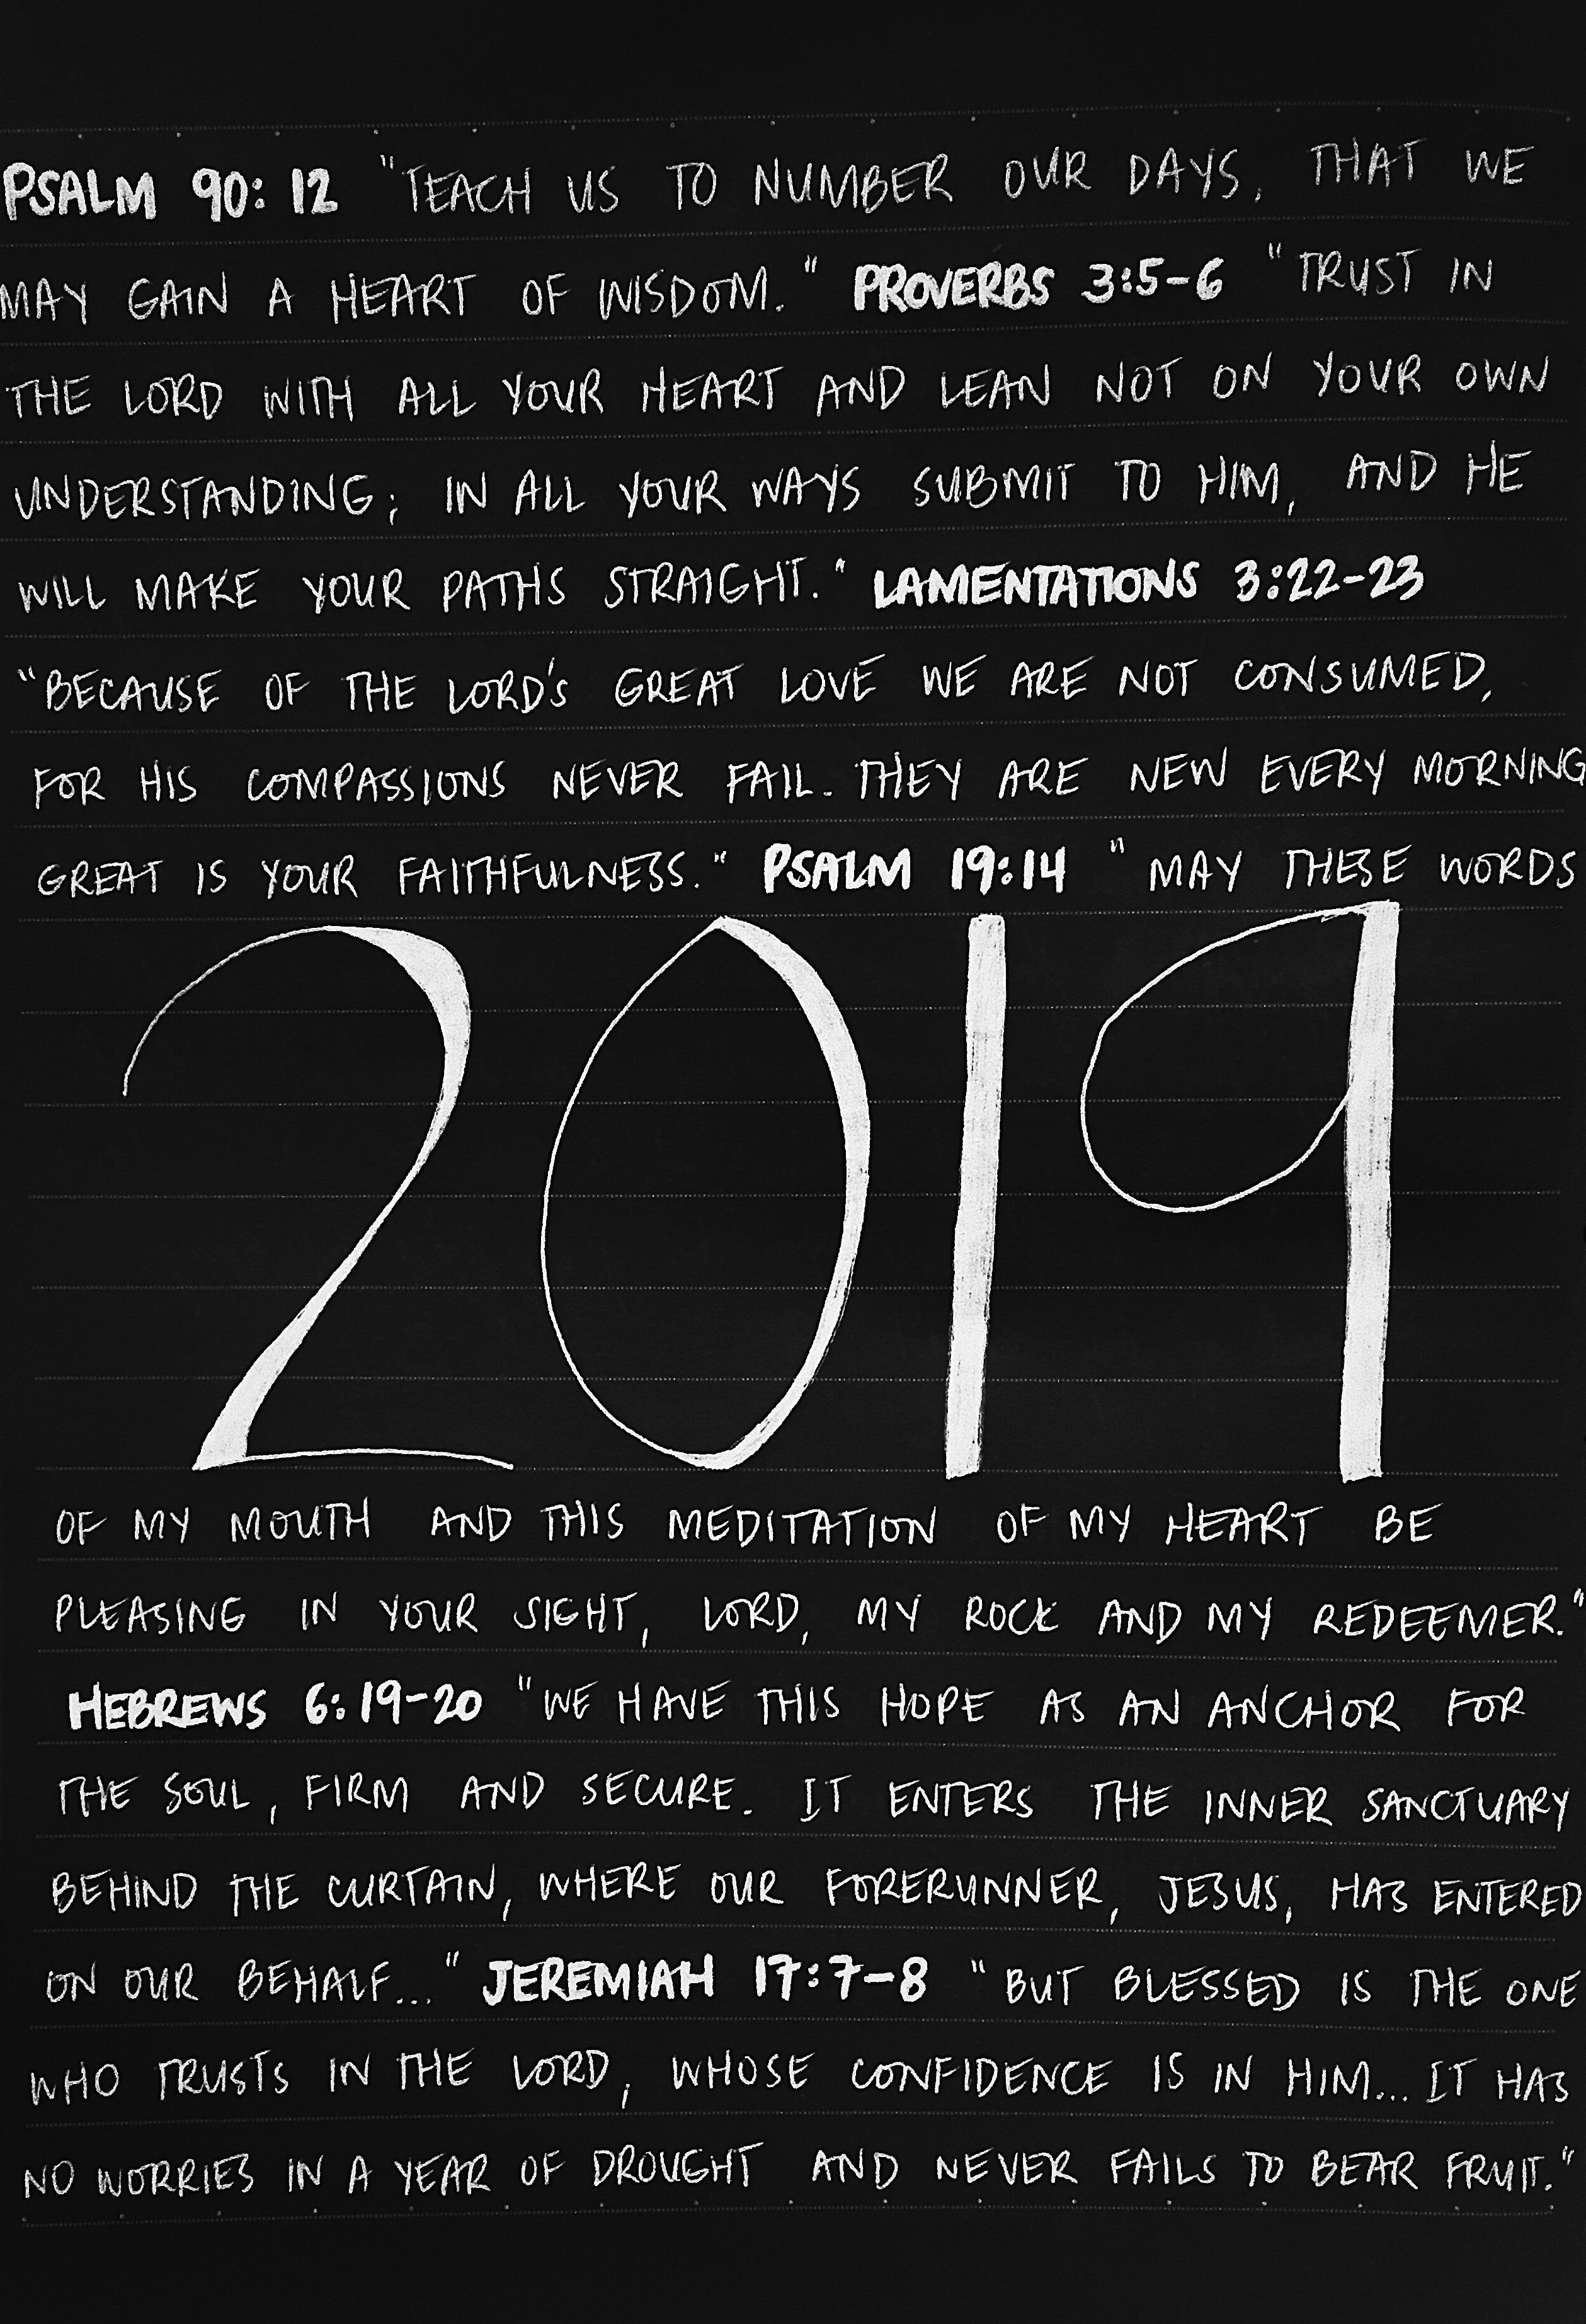 PSALM 90: 12 "TEACH US TO NUMBER OUR DAYS, THAT WE
MAY GAIN A HEART OF WISDOM." PROVERBS 3:5-6 "TRUST IN
THE LORD WITH ALL YOUR HEART AND LEAN NOT ON YOUR OWN
UNDERSTANDING; IN ALL YOUR WAYS SUBMIT TO HIM, AND HE
WILL MAKE YOUR PATHS STRAIGHT." LAMENTATIONS 3:22-23
"BECAUSE OF THE LORD'S GREAT LOVE WE ARE NOT CONSUMED,
FOR HIS COMPASSIONS NEVER FAIL. THEY ARE NEW EVERY MORNING
GREAT IS YOUR FAITHFULNESS." PSALM 19:14 "MAY THESE WORDS
2019
OF MY MOUTH AND THIS MEDITATION OF MY HEART BE
PLEASING IN YOUR SIGHT, LORD, MY ROCK AND MY REDEEMER."
HEBREWS 6:19-20 "WE HAVE THIS HOPE AS AN ANCHOR FOR
THE SOUL, FIRM AND SECURE. IT ENTERS THE INNER SANCTUARY
BEHIND THE CURTAIN, WHERE OUR FORERUNNER, JESUS, HAS ENTERED
ON OUR BEHALF..." JEREMIAH 17:7-8 "BUT BLESSED IS THE ONE
WHO TRUSTS IN THE LORD, WHOSE CONFIDENCE IS IN HIM... IT HAS
NO WORRIES IN A YEAR OF DROUGHT AND NEVER FAILS TO BEAR FRUIT."